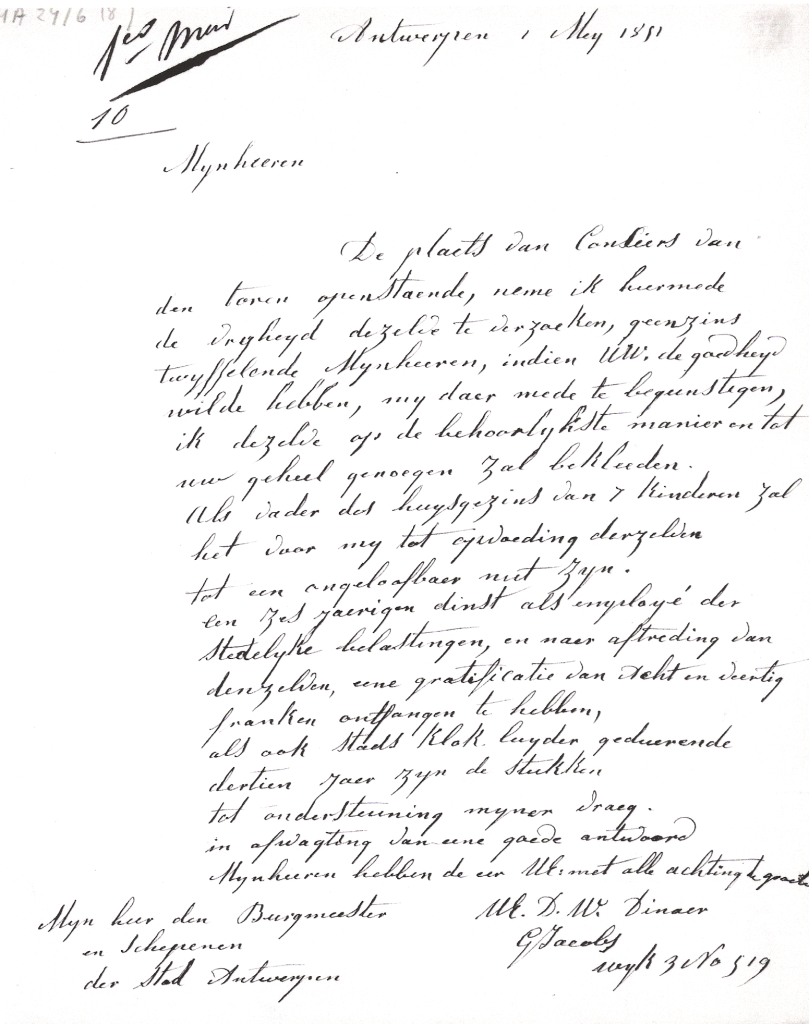 MA 24/6 18
Antwerpen 1 Mey 1851
10
Mynheeren
De plaets van Consiers van
den toren openstaende, neme ik hiermede
de vryheyd dezelve te verzoeken, geenzins
twyffelende Mynheeren, indien UW. de goedheyd
wilde hebben, my daer mede te begunstegen,
ik dezelve op de behoorlykste manier en tot
uw geheel genoegen zal bekleeden.
Als vader des huysgezins van 7 Kinderen zal
het voor my tot opvoeding derzelven
tot een ongeloofbaer nut zyn.
een zes jaerigen dinst als employé der
stedelyke belastingen, en naer aftreding van
denzelven, eene gratificatie van Acht en veertig
franken ontfangen te hebben,
als ook stads Klok luyder geduerende
dertien jaer zyn de stukken
tot ondersteuning myner vraeg.
in afwagting van eene goede antwoord
Mynheeren hebben de eer UE: met alle achting te groete
Myn heer den Burgmeester
en Schepenen
der Stad Antwerpen
UE. D. W. Dinaer
G Jacobs
wyk 3 No 519